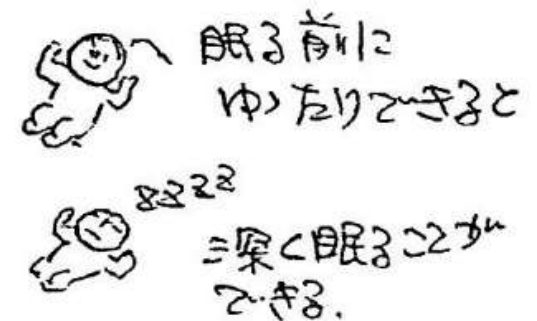 眠る前に
ゆったりできると
zzzz
深く眠ることが
できる.